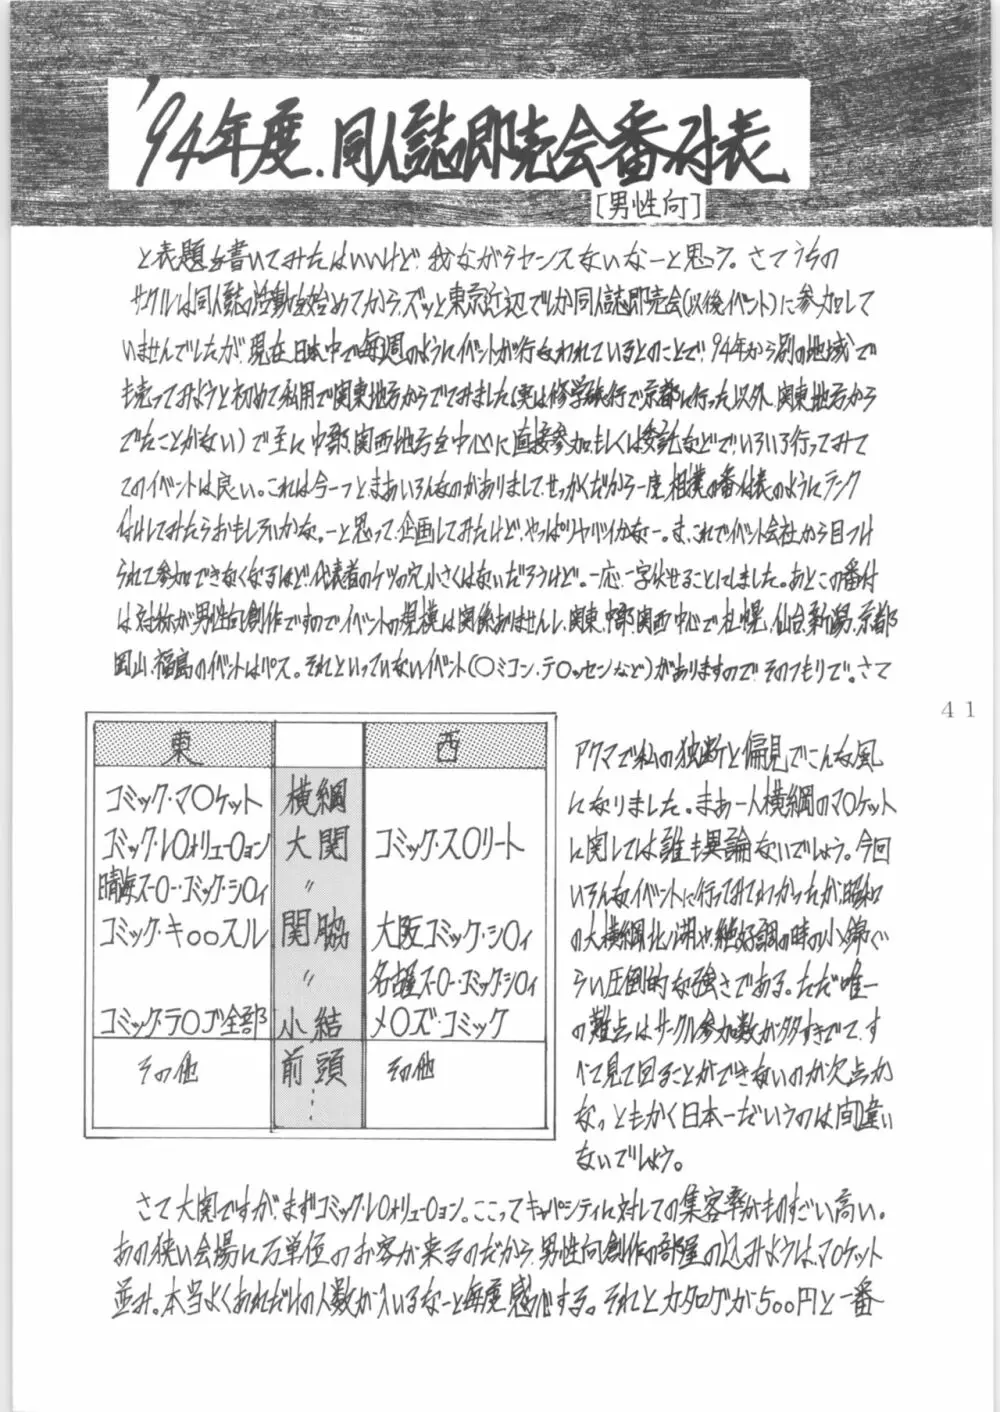 '94年度.同人誌即売会番付表
[男性向]
と表題を書いてみたはいいけど、我ながらセンスないなーと思う。さてうちの
サークルは同人誌の活動を始めてからズッと東京近辺でしか同人誌即売会(以後イベント)に参加して
いませんでしたが、現在、日本中で毎週のようにイベントが行なわれているとのことで、94年から別の地域で
も売ってみようと初めて私用で関東地方からでてみました(実は修学旅行で京都に行った以外、関東地方から
でたことがない)で主に中部、関西地方を中心に直接参加もしくは委託などでいろいろ行ってみて
このイベントは良い。これは今一つと、まあいろんなのがありまして、せっかくだから一度、相撲の番付表のようにランク
付けしてみたらおもしろいかな。ーと思って、企画してみたけど、やっぱりヤバイかなー。ま、これでイベント会社から目つけ
られて参加できなくなるほど、代表者のケツの穴小さくはないだろうけど。一応、一字伏せることにしました。あとこの番付
は対称が男性向創作ですのでイベントの規模は関係ありませんし、関東、中部、関西中心で札幌、仙台、新潟、京都、
岡山、福島のイベントはパス。それといっていないイベント(〇ミコン、テ〇ッセンなど)がありますので、そのつもりで。さて
41
東 西
コミック・マ〇ケット 横綱
コミック・レ〇ォリュー〇ョン 大関 コミック・ス〇リート
晴海スー〇ー・コミック・シ〇ィ 〃
コミック・キ〇〇スル 関脇 大阪コミック・シ〇ィ
〃 名古屋スー〇ー・コミック・シ〇ィ
コミック・ラ〇ブ全部 小結 メ〇ズ・コミック
その他 前頭 その他
アクマで私の独断と偏見でこんな風
になりました。まあ一人横綱のマ〇ケット
に関しては誰も異論ないでしょう。今回
いろんなイベントに行ってみてわかったが、昭和
の大横綱北ノ湖や、絶好調の時の小錦ぐ
らい圧倒的な強さである。ただ唯一
の難点はサークル参加数が多すぎてて、す
べて見て回ることができないのが欠点か
な。ともかく日本一だいうのは間違い
ないでしょう。
さて大関ですが、まずコミック・レ〇ォリュー〇ョン。ここってキャパシティに対しての集客率がものすごい高い。
あの狭い会場に万単位のお客が来るのだから、男性向創作の部屋の込みようは、マ〇ケット
並み。本当よくあれだけの人数が入いるなーと毎度感心する。それとカタログが500円と一番